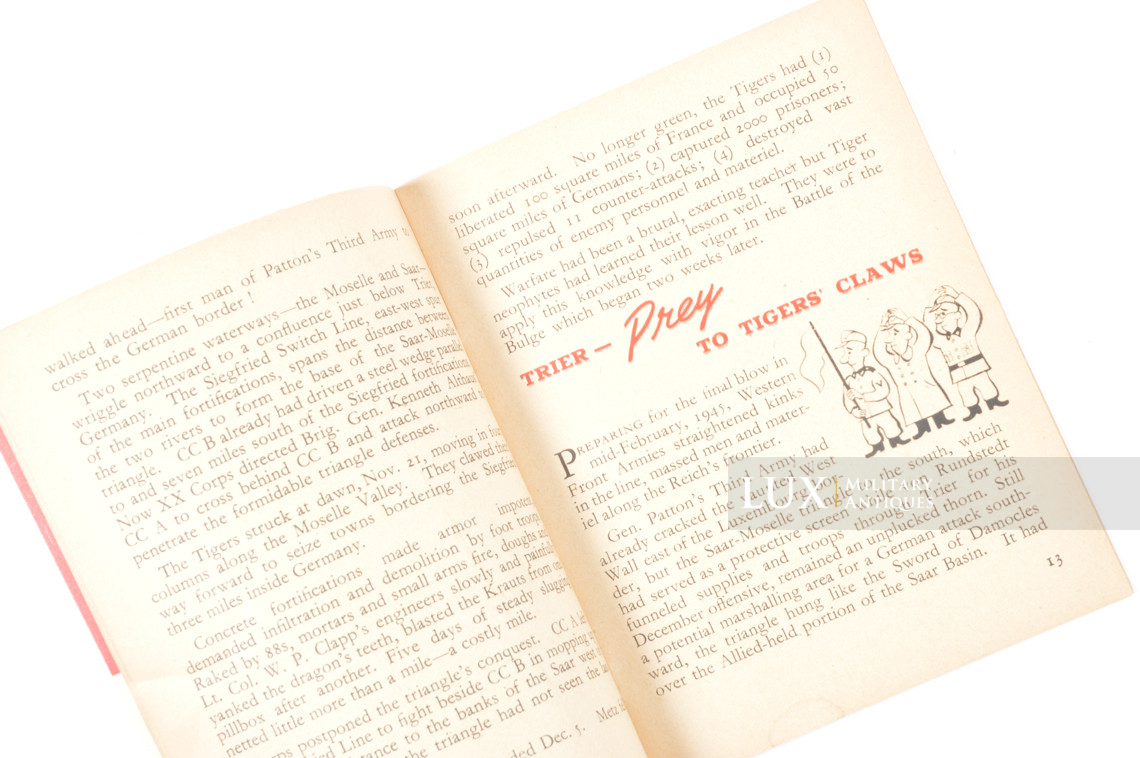 walked ahead—first man of Patton's Third Army
cross the German border!
Two serpentine waterways—the Moselle and Saar—
wriggle northward to a confluence just below Trier,
Germany. The Siegfried Switch Line, east-west
of the main fortifications, spans the distance between
the two rivers to form the base of the Saar-Moselle
triangle. CC B already had driven a steel wedge
to and seven miles south of the Siegfried fortifications.
Now XX Corps directed Brig. Gen. Kenneth Althaus
CC A to cross behind CC B and attack northward
penetrate the formidable triangle defenses.
The Tigers struck at dawn, Nov. 21, moving in four
columns along the Moselle Valley. They clawed their
way forward to seize towns bordering the Siegfried
three miles inside Germany.
Concrete fortifications made armor
demanded infiltration and demolition by foot troops.
Raked by 88s, mortars and small arms fire, doughs and
Lt. Col. W. P. Clapp's engineers slowly and
yanked the dragon's teeth, blasted the Krauts from
pillbox after another. Five days of steady
netted little more than a mile—a costly mile.
postponed the triangle's conquest. CC A
Line to fight beside CC B in mopping
to the banks of the Saar
the triangle had not seen the
Dec. 5. Metz
soon afterward. No longer green, the Tigers had (1)
liberated 100 square miles of France and occupied 50
square miles of Germans; (2) captured 2000 prisoners;
(3) repulsed 11 counter-attacks; (4) destroyed vast
quantities of enemy personnel and materiel.
Warfare had been a brutal, exacting teacher but Tiger
neophytes had learned their lesson well. They were to
apply this knowledge with vigor in the Battle of the
Bulge which began two weeks later.
TRIER— Prey
TO TIGERS' CLAWS
PREPARING for the final blow in
mid-February, 1945, Western
Front Armies straightened kinks
in the line, massed men and mater-
iel along the Reich's frontier.
Gen. Patton's Third Army had
already cracked the West
Wall east of the Luxembourg bor-
der, but the Saar-Moselle triangle to the south, which
had served as a protective screen for Rundstedt
funneled supplies and troops through Trier for his
December offensive, remained an unplucked thorn. Still
a potential marshalling area for a German attack south-
ward, the triangle hung like the Sword of Damocles
over the Allied-held portion of the Saar Basin. It had
13
LUX MILITARY
ANTIQUES